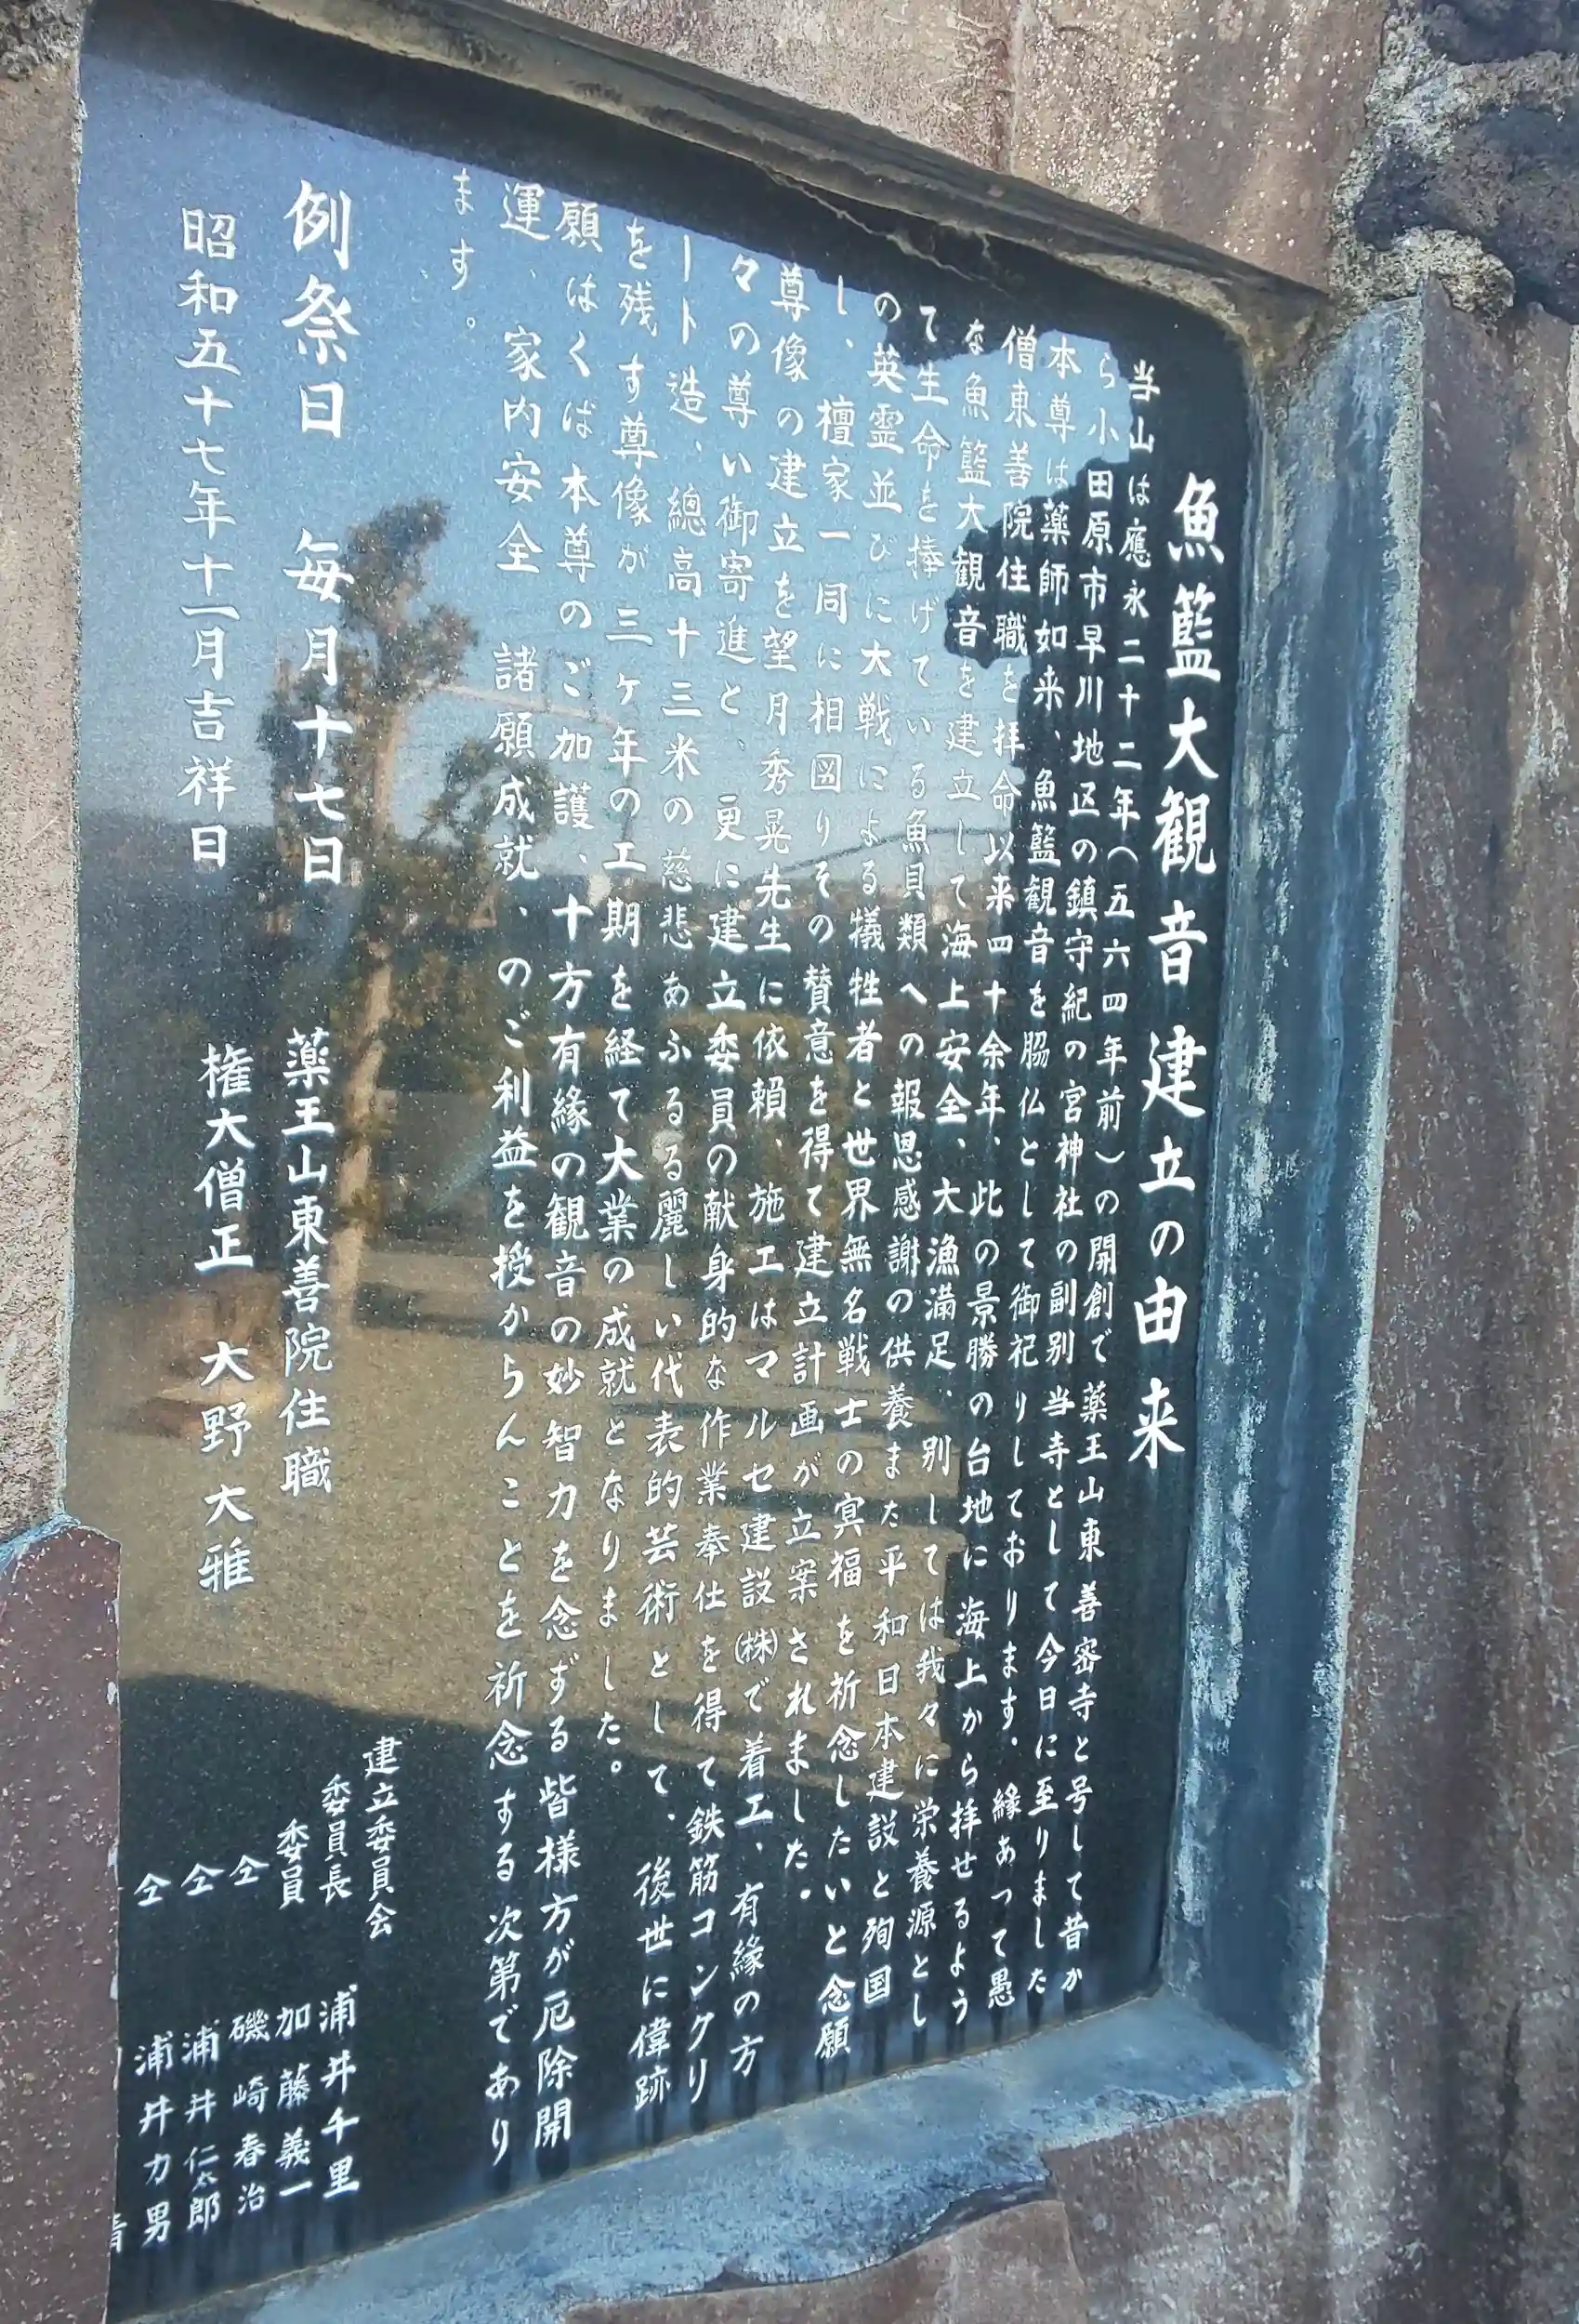 魚籃大観音建立の由来
当山は應永二十二年（五六四年前）の開創で薬王山東善密寺と号して昔か
ら小田原市早川地区の鎮守紀の宮神社の副別当寺として今日に至りました
本尊は薬師如来、魚籃観音を脇仏として御祀りしております。縁あって愚
僧東善院住職を拝命以来四十余年、此の景勝の台地に海上から拝せるよう
な魚籃大観音を建立して海上安全、大漁満足、別しては我々に栄養源とし
て生命を捧げている魚貝類への報恩感謝の供養また平和日本建設と殉国
の英霊並びに大戦による犠牲者と世界無名戦士の冥福を祈念したいと念願
し、檀家一同に相図りその賛意を得て建立計画が立案されました。
尊像の建立を望月秀晃先生に依頼、施工はマルセ建設㈱で着工、有縁の方
々の尊い御寄進と、更に建立委員の献身的な作業奉仕を得て鉄筋コンクリ
ート造、總高十三米の慈悲あふるる麗しい代表的芸術として、後世に偉跡
を残す尊像が三ヶ年の工期を経て大業の成就となりました。
願はくば本尊のご加護、十方有縁の観音の妙智力を念ずる皆様方が厄除開
運、家内安全 諸願成就、のご利益を授からんことを祈念する次第であり
ます。
例祭日 毎月十七日 薬王山東善院住職
昭和五十七年十一月吉祥日 権大僧正 大野大雅
建立委員会
委員長 浦井千里
委員 加藤義一
仝 磯崎春治
仝 浦井仁太郎
仝 浦井力男